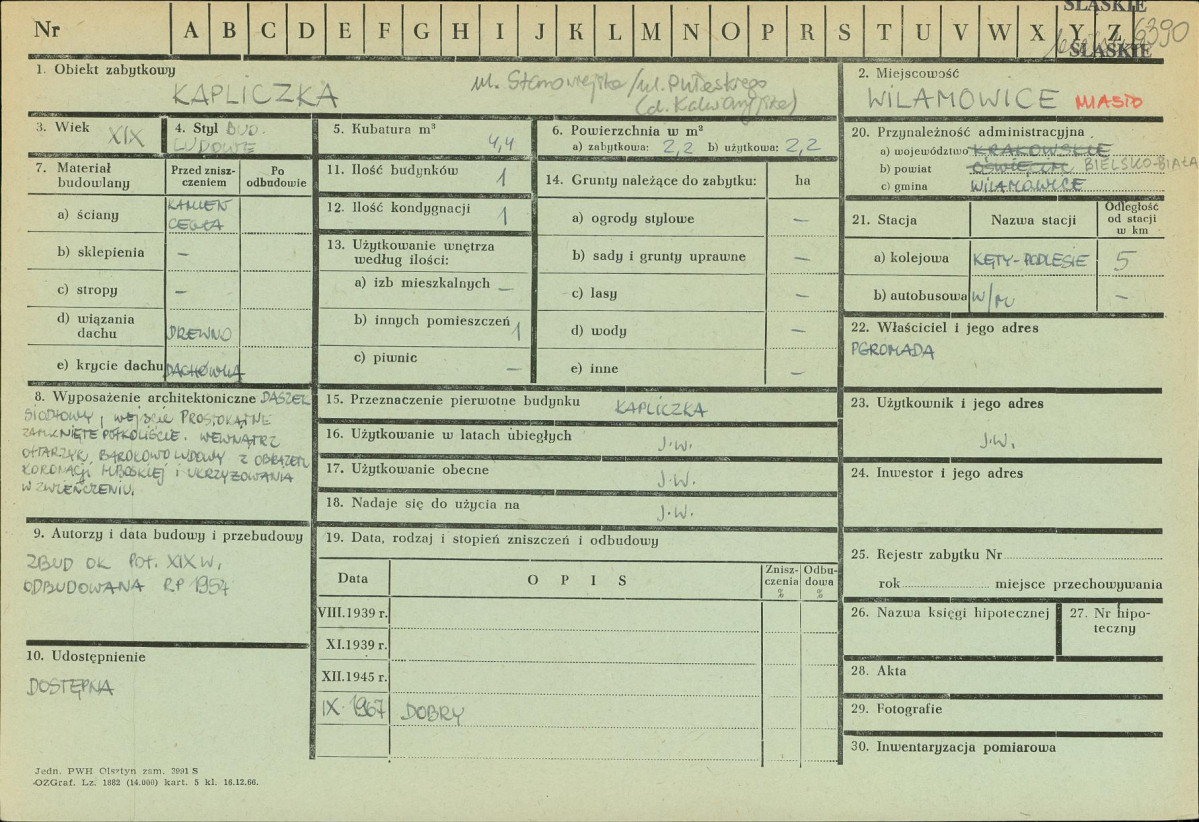 Nr A B C D E F G H I J K L M N O P R S T U V W X Y Z
ŚLĄSKIE
6390
ŚLĄSKIE
1. Obiekt zabytkowy
KAPLICZKA
2. Miejscowość
WILAMOWICE MIASTO
3. Wiek XIX
4. Styl BUD. LUDOWE
5. Kubatura m³ 4,4
6. Powierzchnia w m²
a) zabytkowa: 2,2 b) użytkowa: 2,2
7. Materiał budowlany
Przed zniszczeniem
Po odbudowie
a) ściany KAMIEŃ CEGŁA
b) sklepienia –
c) stropy –
d) wiązania dachu DREWNO
e) krycie dachu DACHÓWKA
8. Wyposażenie architektoniczne DASZEK
SIODŁOWY, WEJŚCIE PROSTOKĄTNE
ZAMKNIĘTE PÓŁKOLIŚCIE. WEWNĄTRZ
OŁTARZYK BAROKOWO LUDOWY Z OBRAZEM
KORONACJI M.BOSKIEJ I UKRZYŻOWANIA
W ZWIEŃCZENIU.
9. Autorzy i data budowy i przebudowy
ZBUD OK POŁ. XIX W,
ODBUDOWANA R.P 1957
10. Udostępnienie
DOSTĘPNA
11. Ilość budynków 1
12. Ilość kondygnacji 1
13. Użytkowanie wnętrza według ilości:
a) izb mieszkalnych –
b) innych pomieszczeń 1
c) piwnic –
14. Grunty należące do zabytku: ha
a) ogrody stylowe –
b) sady i grunty uprawne –
c) lasy –
d) wody –
e) inne –
15. Przeznaczenie pierwotne budynku KAPLICZKA
16. Użytkowanie w latach ubiegłych J.W.
17. Użytkowanie obecne J.W.
18. Nadaje się do użycia na J.W.
19. Data, rodzaj i stopień zniszczeń i odbudowy
Data OPIS Zniszczenia % Odbudowa %
VIII.1939 r.
XI.1939 r.
XII.1945 r.
IX.1967 DOBRY
20. Przynależność administracyjna
a) województwo KRAKOWSKIE
b) powiat OŚWIĘCIM BIELSKO-BIAŁA
c) gmina WILAMOWICE
21. Stacja Nazwa stacji Odległość od stacji w km
a) kolejowa KĘTY-PODLESIE 5
b) autobusowa W/M –
22. Właściciel i jego adres
PGROMADA
23. Użytkownik i jego adres
J.W.
24. Inwestor i jego adres
25. Rejestr zabytku Nr
rok miejsce przechowywania
26. Nazwa księgi hipotecznej
27. Nr hipoteczny
28. Akta
29. Fotografie
30. Inwentaryzacja pomiarowa
Jedn. PWH Olsztyn zam. 3991 S
OZGraf. Lz. 1882 (14.000) kart. 5 kl. 16.12.66.